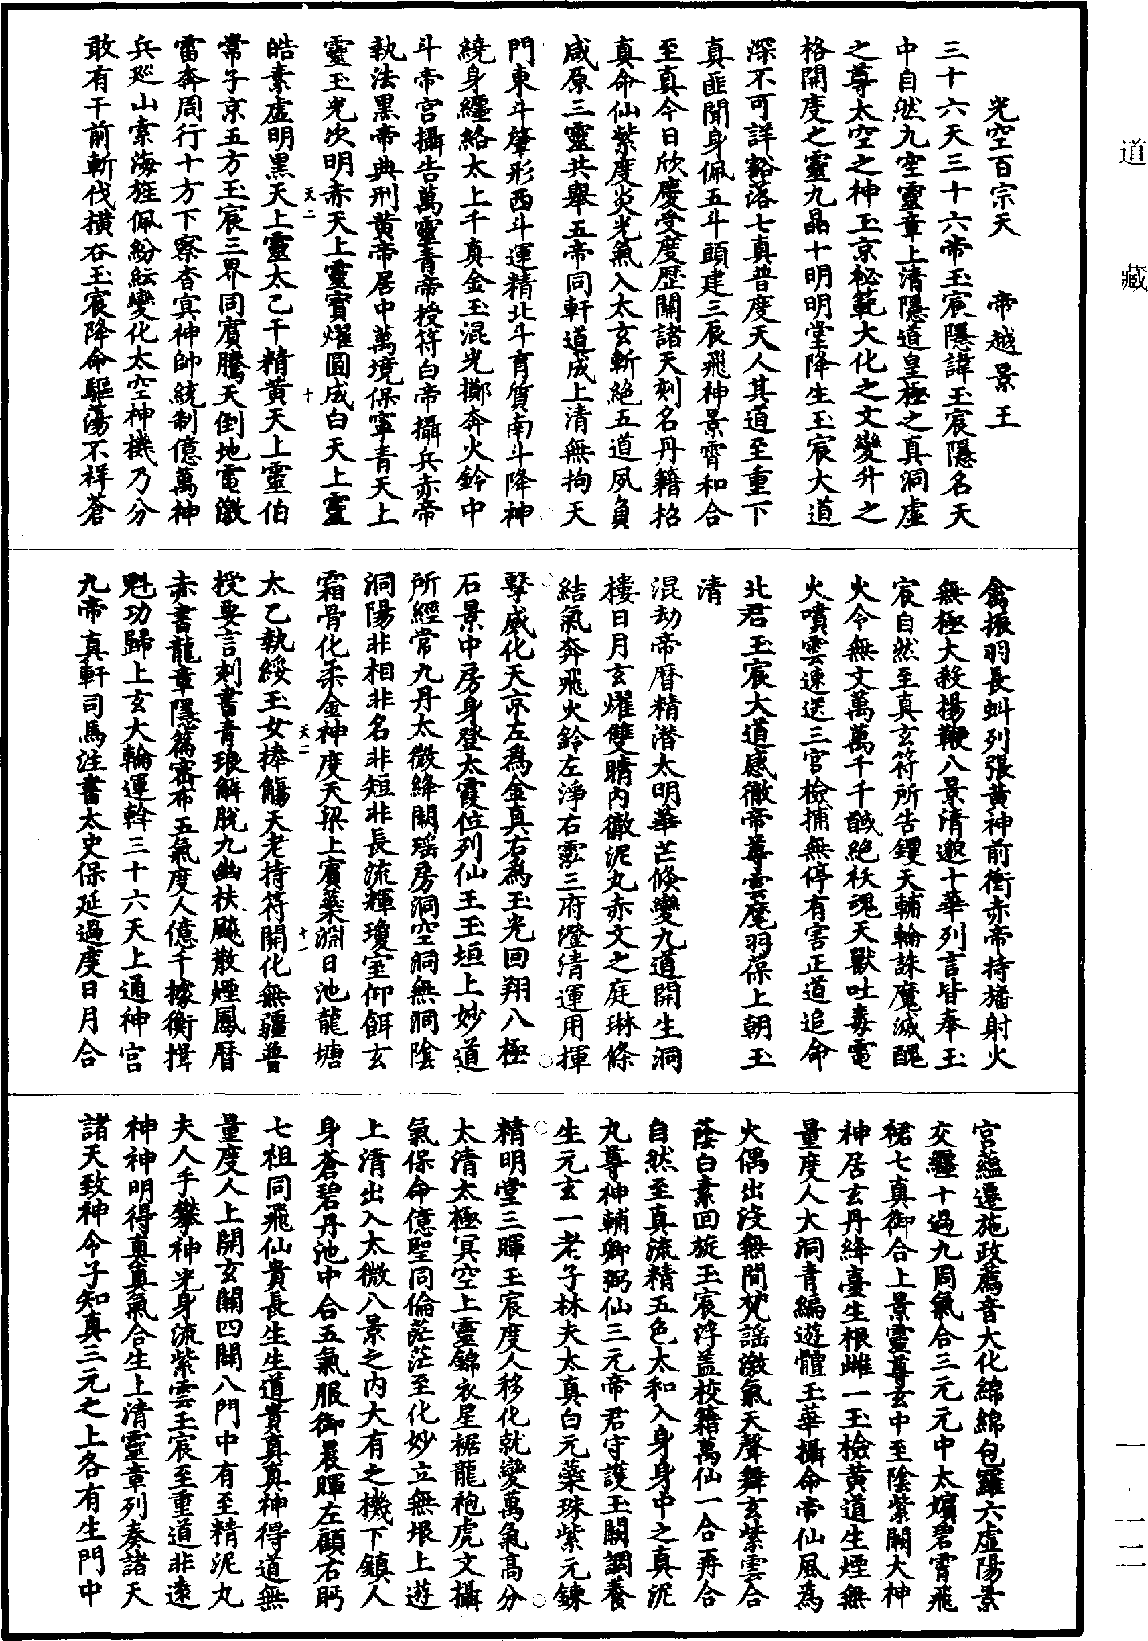 道藏
光空百宗天　帝越景王
三十六天三十六帝玉宸隱諱玉宸隱名天
中自然九空靈章上清隱道皇極之真洞虛
之尊太空之神玉京秘範大化之文變升之
格開度之靈九晶十明明堂降生玉宸大道
深不可詳豁落七真普度天人其道至重下
真匪聞身佩五斗頭建三辰飛神景霄和合
至真今日欣慶受度歷關諸天刻名丹籍拾
真命仙紫度炎光氣入太玄斬絕五道夙負
咸原三靈共舉五帝同軒道成上清無拘天
門東斗肇形西斗運精北斗育質南斗降神
繞身纏絡太上千真金玉混光擲奔火鈴中
斗帝宮攝告萬靈青帝授符白帝攝兵赤帝
執法黑帝典刑黃帝居中萬境保寧青天上
靈玉光次明赤天上靈寶耀圓成白天上靈
天二　十
皓素虛明黑天上靈太乙干精黃天上靈伯
常子京五方玉宸三界同賓騰天倒地電激
雷奔周行十方下察杳冥神帥統制億萬神
兵巡山索海旌佩紛紜變化太空神機乃分
敢有干前斬伐橫吞玉宸降命驅蕩不祥蒼
禽振羽長蚪列張黃神前衝赤帝持旛射火
無極大殺揚鞭八景清邀十華列言皆奉玉
宸自然至真玄符所告鑊天輔輪誅魔滅醜
火令無文萬萬千千馘絕祅魂天獸吐毒電
火噴雲速送三官檢捕無停有害正道追命
北君玉宸大道感徹帝尊雲麾羽葆上朝玉
清
混劫帝曆精潛太明華芒倏變九道開生洞
樓日月玄耀雙睛內徹泥丸赤文之庭琳條
結氣奔飛火鈴左淨右靈三府澄清運用揮
擊威化天京左為金真右為玉光回翔八極
石景中房身登太霞位列仙王玉垣上妙道
所經常九丹太微絳關瑤房洞空洞無洞陰
洞陽非相非名非短非長流輝瓊室仰餌玄
霜骨化柔金神度天梁上賓藥淵日池龍塘
天二　十一
太乙執綏玉女捧觴天老持符開化無疆普
授要言刺書青琅解脫九幽扶颷散煙鳳曆
赤書龍章隱篇密布五氣度人億千據衡揖
魁功歸上玄大輪運斡三十六天上通神宮
九帝真軒司馬注書太史保延過度日月合
宮蘊遷施政薦音大化綿綿包羅六虛陽景
交纏十過九周氣合三元元中太嬪碧霄飛
裙七真御合上景靈尊玄中至陰紫關大神
神居玄丹絳臺生根雌一玉檢黃道生煙無
量度人大洞青編遊體玉華攝命帝仙風為
火偶出沒無間梵謠激氣天聲舞玄紫雲合
蔭白素回旋玉宸浮蓋校籍萬仙一合再合
自然至真流精五色太和入身身中之真泥
丸尊神輔卿弼仙三元帝君守護玉關調養
生元玄一老子林夫太真白元藥珠紫元鍊
精明堂三暉玉宸度人移化就變萬氣高分
太清太極冥空上靈錦衣星裾龍袍虎文攝
氣保命億聖同倫茫茫至化妙立無垠上遊
上清出入太微八景之內大有之機下鎮人
身蒼碧丹池中合五氣服御晨暉左顧右眄
七祖同飛仙貴長生生道貴真真神得道無
量度人上開玄關四闢八門中有至精泥丸
夫人手攀神光身流紫雲玉宸至重道非遠
神神明得真真氣合生上清靈章列奏諸天
諸天致神令子知真三元之上各有生門中
一一二